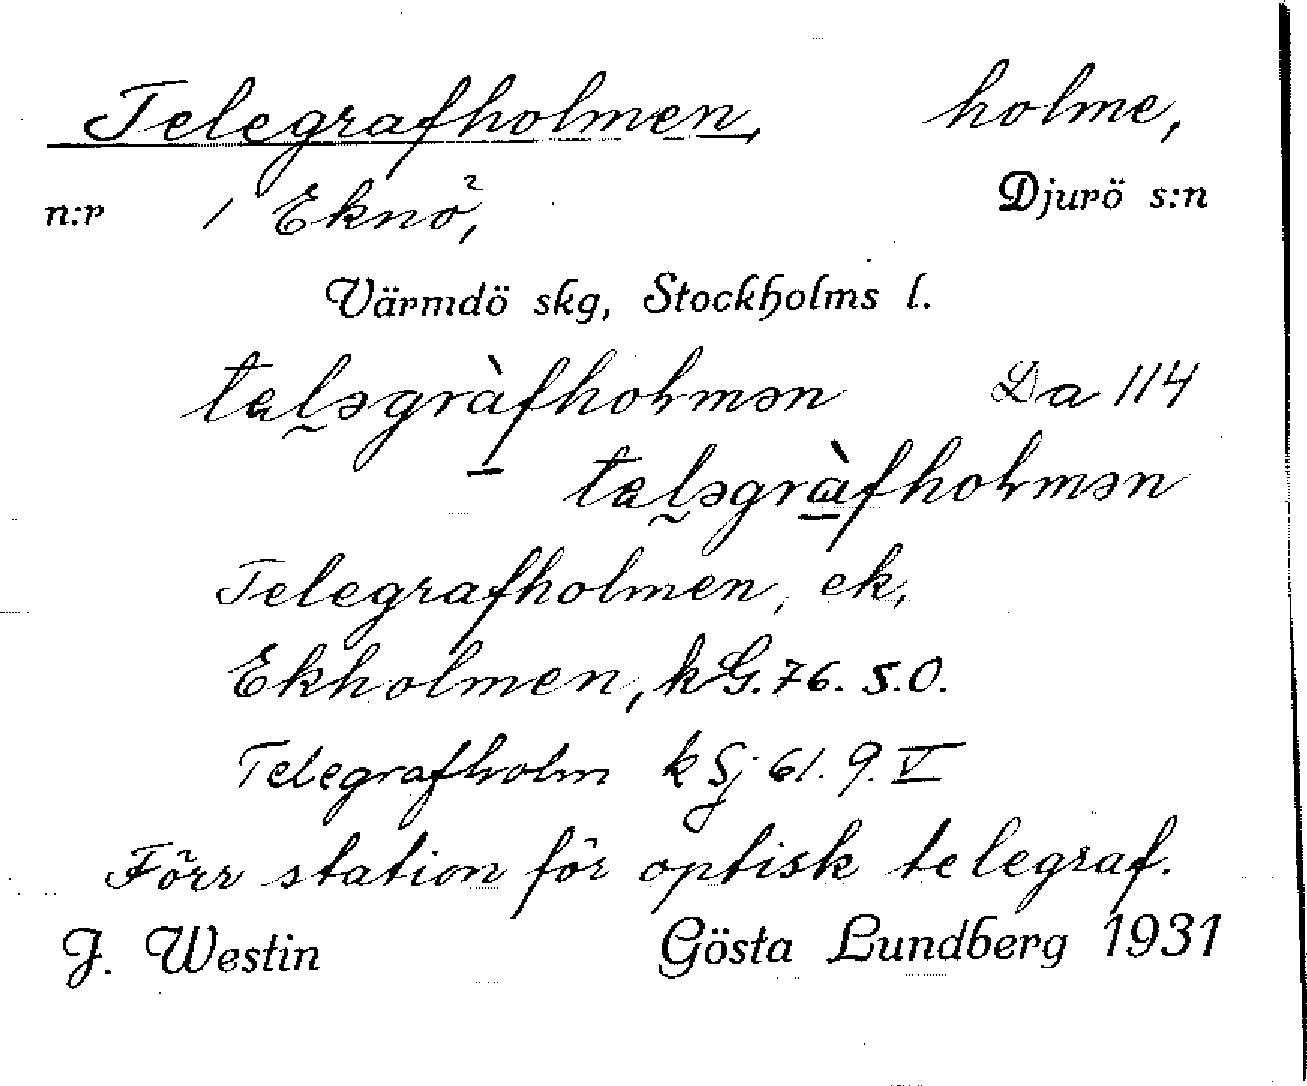 Telegrafholmen, holme,
n:r 1 Eknö, Djurö s:n
Värmdö skg, Stockholms l.
taləgràfhoɫmən Da 114
taləgràfhoɫmən
Telegrafholmen, ek,
Ekholmen, kG. 76. S.O.
Telegrafholm k Sj 61. 9. V
Förr station för optisk telegraf.
J. Westin Gösta Lundberg 1931